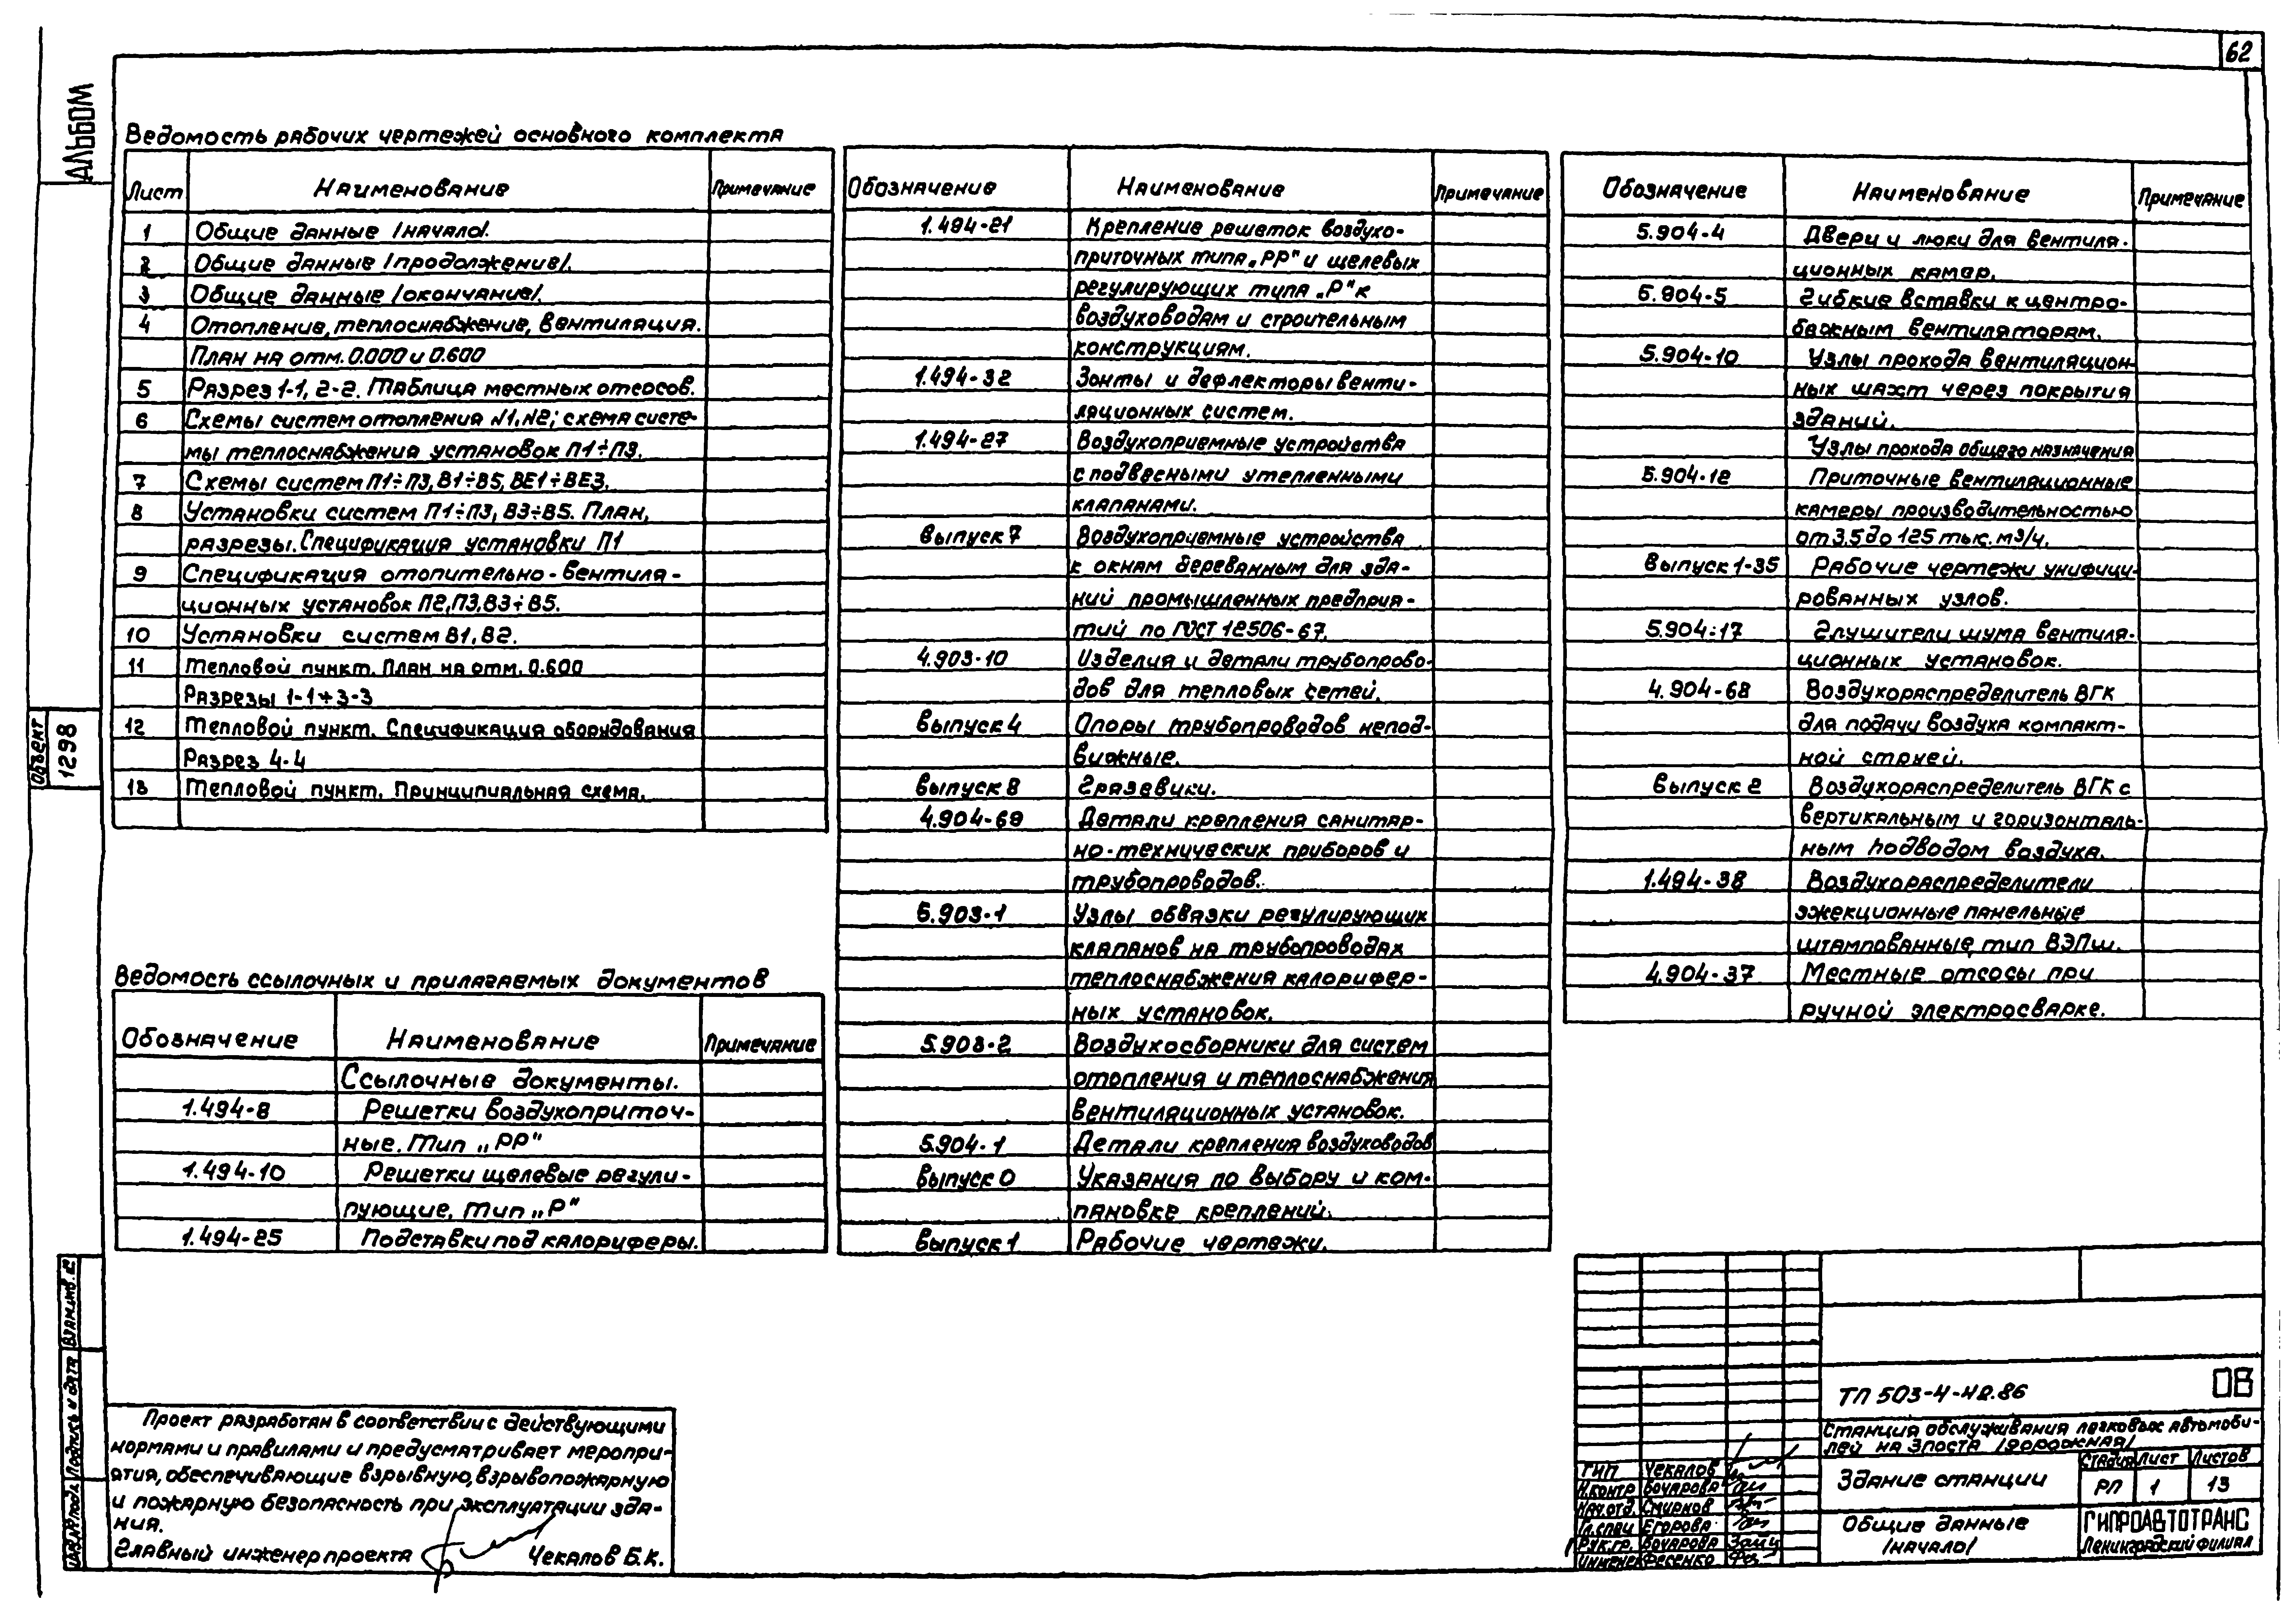 62
Альбом
Ведомость рабочих чертежей основного комплекта
Лист Наименование Примечание
1 Общие данные /начало/.
2 Общие данные /продолжение/.
3 Общие данные /окончание/.
4 Отопление, теплоснабжение, вентиляция.
План на отм. 0.000 и 0.600
5 Разрез 1-1, 2-2. Таблица местных отсосов.
6 Схемы систем отопления №1, №2; схема систе-
мы теплоснабжения установок П1÷П3.
7 Схемы систем П1÷П3, В1÷В5, ВЕ1÷ВЕ3.
8 Установки систем П1÷П3, В3÷В5. План,
разрезы. Спецификация установки П1
9 Спецификация отопительно-вентиля-
ционных установок П2, П3, В3÷В5.
10 Установки систем В1, В2.
11 Тепловой пункт. План на отм. 0.600
Разрезы 1-1÷3-3
12 Тепловой пункт. Спецификация оборудования
Разрез 4-4
13 Тепловой пункт. Принципиальная схема.
Ведомость ссылочных и прилагаемых документов
Обозначение Наименование Примечание
Ссылочные документы.
1.494-8 Решетки воздухоприточ-
ные. Тип „РР"
1.494-10 Решетки щелевые регули-
рующие. Тип „Р"
1.494-25 Подставки под калориферы.
Обозначение Наименование Примечание
1.494-21 Крепление решеток воздухо-
приточных типа „РР" и щелевых
регулирующих типа „Р" к
воздуховодам и строительным
конструкциям.
1.494-32 Зонты и дефлекторы венти-
ляционных систем.
1.494-27 Воздухоприемные устройства
с подвесными утепленными
клапанами.
Выпуск 7 Воздухоприемные устройства
к окнам деревянным для зда-
ний промышленных предприя-
тий по ГОСТ 12506-67.
4.903-10 Изделия и детали трубопрово-
дов для тепловых сетей.
Выпуск 4 Опоры трубопроводов непод-
вижные.
Выпуск 8 Грязевики.
4.904-69 Детали крепления санитар-
но-технических приборов и
трубопроводов.
5.903-1 Узлы обвязки регулирующих
клапанов на трубопроводах
теплоснабжения калорифер-
ных установок.
5.903-2 Воздухосборники для систем
отопления и теплоснабжения
вентиляционных установок.
5.904-1 Детали крепления воздуховодов
Выпуск 0 Указания по выбору и ком-
пановке креплений.
Выпуск 1 Рабочие чертежи.
Обозначение Наименование Примечание
5.904-4 Двери и люки для вентиля-
ционных камер.
5.904-5 Гибкие вставки к центро-
бежным вентиляторам.
5.904-10 Узлы прохода вентиляцион-
ных шахт через покрытия
зданий.
Узлы прохода общего назначения
5.904-12 Приточные вентиляционные
камеры производительностью
от 3.5 до 125 тыс. м³/ч.
Выпуск 1-35 Рабочие чертежи унифици-
рованных узлов.
5.904-17 Глушители шума вентиля-
ционных установок.
4.904-68 Воздухораспределитель ВГК
для подачи воздуха компакт-
ной струей.
Выпуск 2 Воздухораспределитель ВГК с
вертикальным и горизонталь-
ным подводом воздуха.
1.494-38 Воздухораспределители
эжекционные панельные
штампованные тип ВЭПш.
4.904-37 Местные отсосы при
ручной электросварке.
Объект
1298
Взам.инв.№
Подпись и дата
Инв.№ подл.
Проект разработан в соответствии с действующими
нормами и правилами и предусматривает меропри-
ятия, обеспечивающие взрывную, взрывопожарную
и пожарную безопасность при эксплуатации зда-
ния.
Главный инженер проекта Чекалов Б.К.
ТП 503-4-42.86 ОВ
Станция обслуживания легковых автомоби-
лей на 3 поста /дорожная/
Здание станции
Стадия Лист Листов
РП 1 13
Общие данные
/начало/
ГИПРОАВТОТРАНС
Ленинградский филиал
ГИП Чекалов
Н.контр Бочарова
Нач.отд. Смирнов
Гл.спец Егорова
Рук.гр. Бочарова
Инженер Фесенко